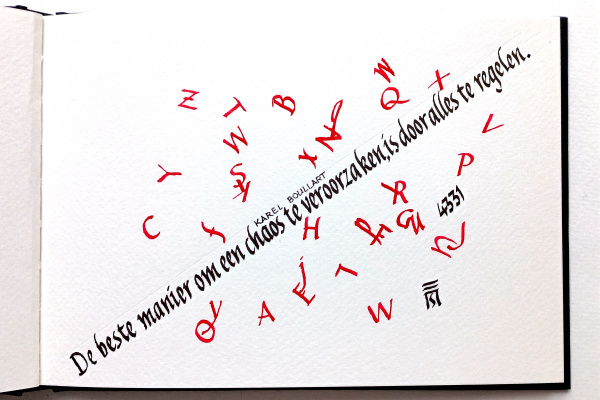 De beste manier om een chaos te veroorzaken, is door alles te regelen.
KAREL BOULLART
Z
T
B
W
Q
X
W
N
X
L
Y
S
P
C
f
H
R
4331
j
E
A
W